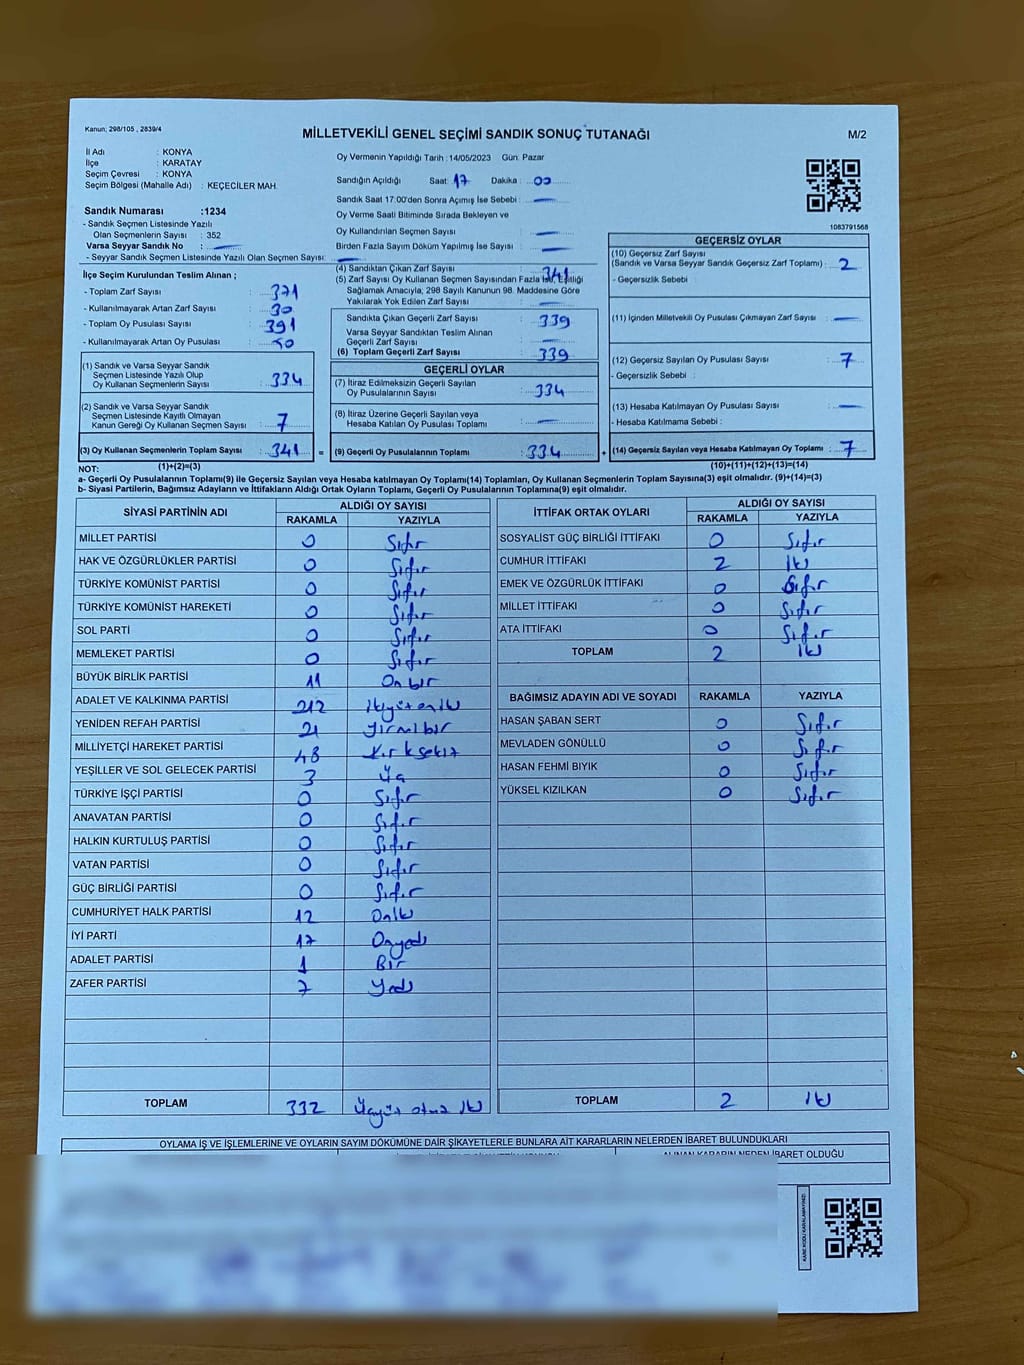 Kanun; 298/105 , 2839/4
MİLLETVEKİLİ GENEL SEÇİMİ SANDIK SONUÇ TUTANAĞI
M/2
İl Adı : KONYA
İlçe : KARATAY
Seçim Çevresi : KONYA
Seçim Bölgesi (Mahalle Adı) : KEÇECİLER MAH.
Sandık Numarası :1234
- Sandık Seçmen Listesinde Yazılı
Olan Seçmenlerin Sayısı : 352
Varsa Seyyar Sandık No : —
- Seyyar Sandık Seçmen Listesinde Yazılı Olan Seçmen Sayısı: —
Oy Vermenin Yapıldığı Tarih :14/05/2023 Gün: Pazar
Sandığın Açıldığı Saat: 17 Dakika : 00
Sandık Saat 17:00'den Sonra Açılmış İse Sebebi : —
Oy Verme Saati Bitiminde Sırada Bekleyen ve
Oy Kullandırılan Seçmen Sayısı : —
Birden Fazla Sayım Döküm Yapılmış İse Sayısı : —
1083791568
İlçe Seçim Kurulundan Teslim Alınan ;
- Toplam Zarf Sayısı : 371
- Kullanılmayarak Artan Zarf Sayısı : 30
- Toplam Oy Pusulası Sayısı : 391
- Kullanılmayarak Artan Oy Pusulası : 50
(1) Sandık ve Varsa Seyyar Sandık
Seçmen Listesinde Yazılı Olup
Oy Kullanan Seçmenlerin Sayısı : 334
(2) Sandık ve Varsa Seyyar Sandık
Seçmen Listesinde Kayıtlı Olmayan
Kanun Gereği Oy Kullanan Seçmen Sayısı : 7
(3) Oy Kullanan Seçmenlerin Toplam Sayısı : 341 =
(4) Sandıktan Çıkan Zarf Sayısı : 341
(5) Zarf Sayısı Oy Kullanan Seçmen Sayısından Fazla İse, Eşitliği
Sağlamak Amacıyla, 298 Sayılı Kanunun 98. Maddesine Göre
Yakılarak Yok Edilen Zarf Sayısı : —
Sandıkta Çıkan Geçerli Zarf Sayısı : 339
Varsa Seyyar Sandıktan Teslim Alınan
Geçerli Zarf Sayısı : —
(6) Toplam Geçerli Zarf Sayısı : 339
GEÇERLİ OYLAR
(7) İtiraz Edilmeksizin Geçerli Sayılan
Oy Pusulalarının Sayısı : 334
(8) İtiraz Üzerine Geçerli Sayılan veya
Hesaba Katılan Oy Pusulası Toplamı : —
(9) Geçerli Oy Pusulalarının Toplamı : 334 +
GEÇERSİZ OYLAR
(10) Geçersiz Zarf Sayısı
(Sandık ve Varsa Seyyar Sandık Geçersiz Zarf Toplamı) : 2
- Geçersizlik Sebebi :
(11) İçinden Milletvekili Oy Pusulası Çıkmayan Zarf Sayısı : —
(12) Geçersiz Sayılan Oy Pusulası Sayısı : 7
- Geçersizlik Sebebi :
(13) Hesaba Katılmayan Oy Pusulası Sayısı : —
- Hesaba Katılmama Sebebi :
(14) Geçersiz Sayılan veya Hesaba Katılmayan Oy Toplamı : 7
NOT: (1)+(2)=(3) (10)+(11)+(12)+(13)=(14)
a- Geçerli Oy Pusulalarının Toplamı(9) ile Geçersiz Sayılan veya Hesaba katılmayan Oy Toplamı(14) Toplamları, Oy Kullanan Seçmenlerin Toplam Sayısına(3) eşit olmalıdır. (9)+(14)=(3)
b- Siyasi Partilerin, Bağımsız Adayların ve İttifakların Aldığı Ortak Oyların Toplamı, Geçerli Oy Pusulalarının Toplamına(9) eşit olmalıdır.
SİYASİ PARTİNİN ADI ALDIĞI OY SAYISI
RAKAMLA YAZIYLA
MİLLET PARTİSİ 0 Sıfır
HAK VE ÖZGÜRLÜKLER PARTİSİ 0 Sıfır
TÜRKİYE KOMÜNİST PARTİSİ 0 Sıfır
TÜRKİYE KOMÜNİST HAREKETİ 0 Sıfır
SOL PARTİ 0 Sıfır
MEMLEKET PARTİSİ 0 Sıfır
BÜYÜK BİRLİK PARTİSİ 11 Onbir
ADALET VE KALKINMA PARTİSİ 212 ikiyüzoniki
YENİDEN REFAH PARTİSİ 21 Yirmibir
MİLLİYETÇİ HAREKET PARTİSİ 48 Kırksekiz
YEŞİLLER VE SOL GELECEK PARTİSİ 3 Üç
TÜRKİYE İŞÇİ PARTİSİ 0 Sıfır
ANAVATAN PARTİSİ 0 Sıfır
HALKIN KURTULUŞ PARTİSİ 0 Sıfır
VATAN PARTİSİ 0 Sıfır
GÜÇ BİRLİĞİ PARTİSİ 0 Sıfır
CUMHURİYET HALK PARTİSİ 12 Oniki
İYİ PARTİ 17 Onyedi
ADALET PARTİSİ 1 Bir
ZAFER PARTİSİ 7 Yedi
TOPLAM 332 Üçyüz otuz iki
İTTİFAK ORTAK OYLARI ALDIĞI OY SAYISI
RAKAMLA YAZIYLA
SOSYALİST GÜÇ BİRLİĞİ İTTİFAKI 0 Sıfır
CUMHUR İTTİFAKI 2 İki
EMEK VE ÖZGÜRLÜK İTTİFAKI 0 Sıfır
MİLLET İTTİFAKI 0 Sıfır
ATA İTTİFAKI 0 Sıfır
TOPLAM 2 İki
BAĞIMSIZ ADAYIN ADI VE SOYADI RAKAMLA YAZIYLA
HASAN ŞABAN SERT 0 Sıfır
MEVLADEN GÖNÜLLÜ 0 Sıfır
HASAN FEHMİ BIYIK 0 Sıfır
YÜKSEL KIZILKAN 0 Sıfır
TOPLAM 2 İki
OYLAMA İŞ VE İŞLEMLERİNE VE OYLARIN SAYIM DÖKÜMÜNE DAİR ŞİKAYETLERLE BUNLARA AİT KARARLARIN NELERDEN İBARET BULUNDUKLARI
ALINAN KARARIN NEDEN İBARET OLDUĞU